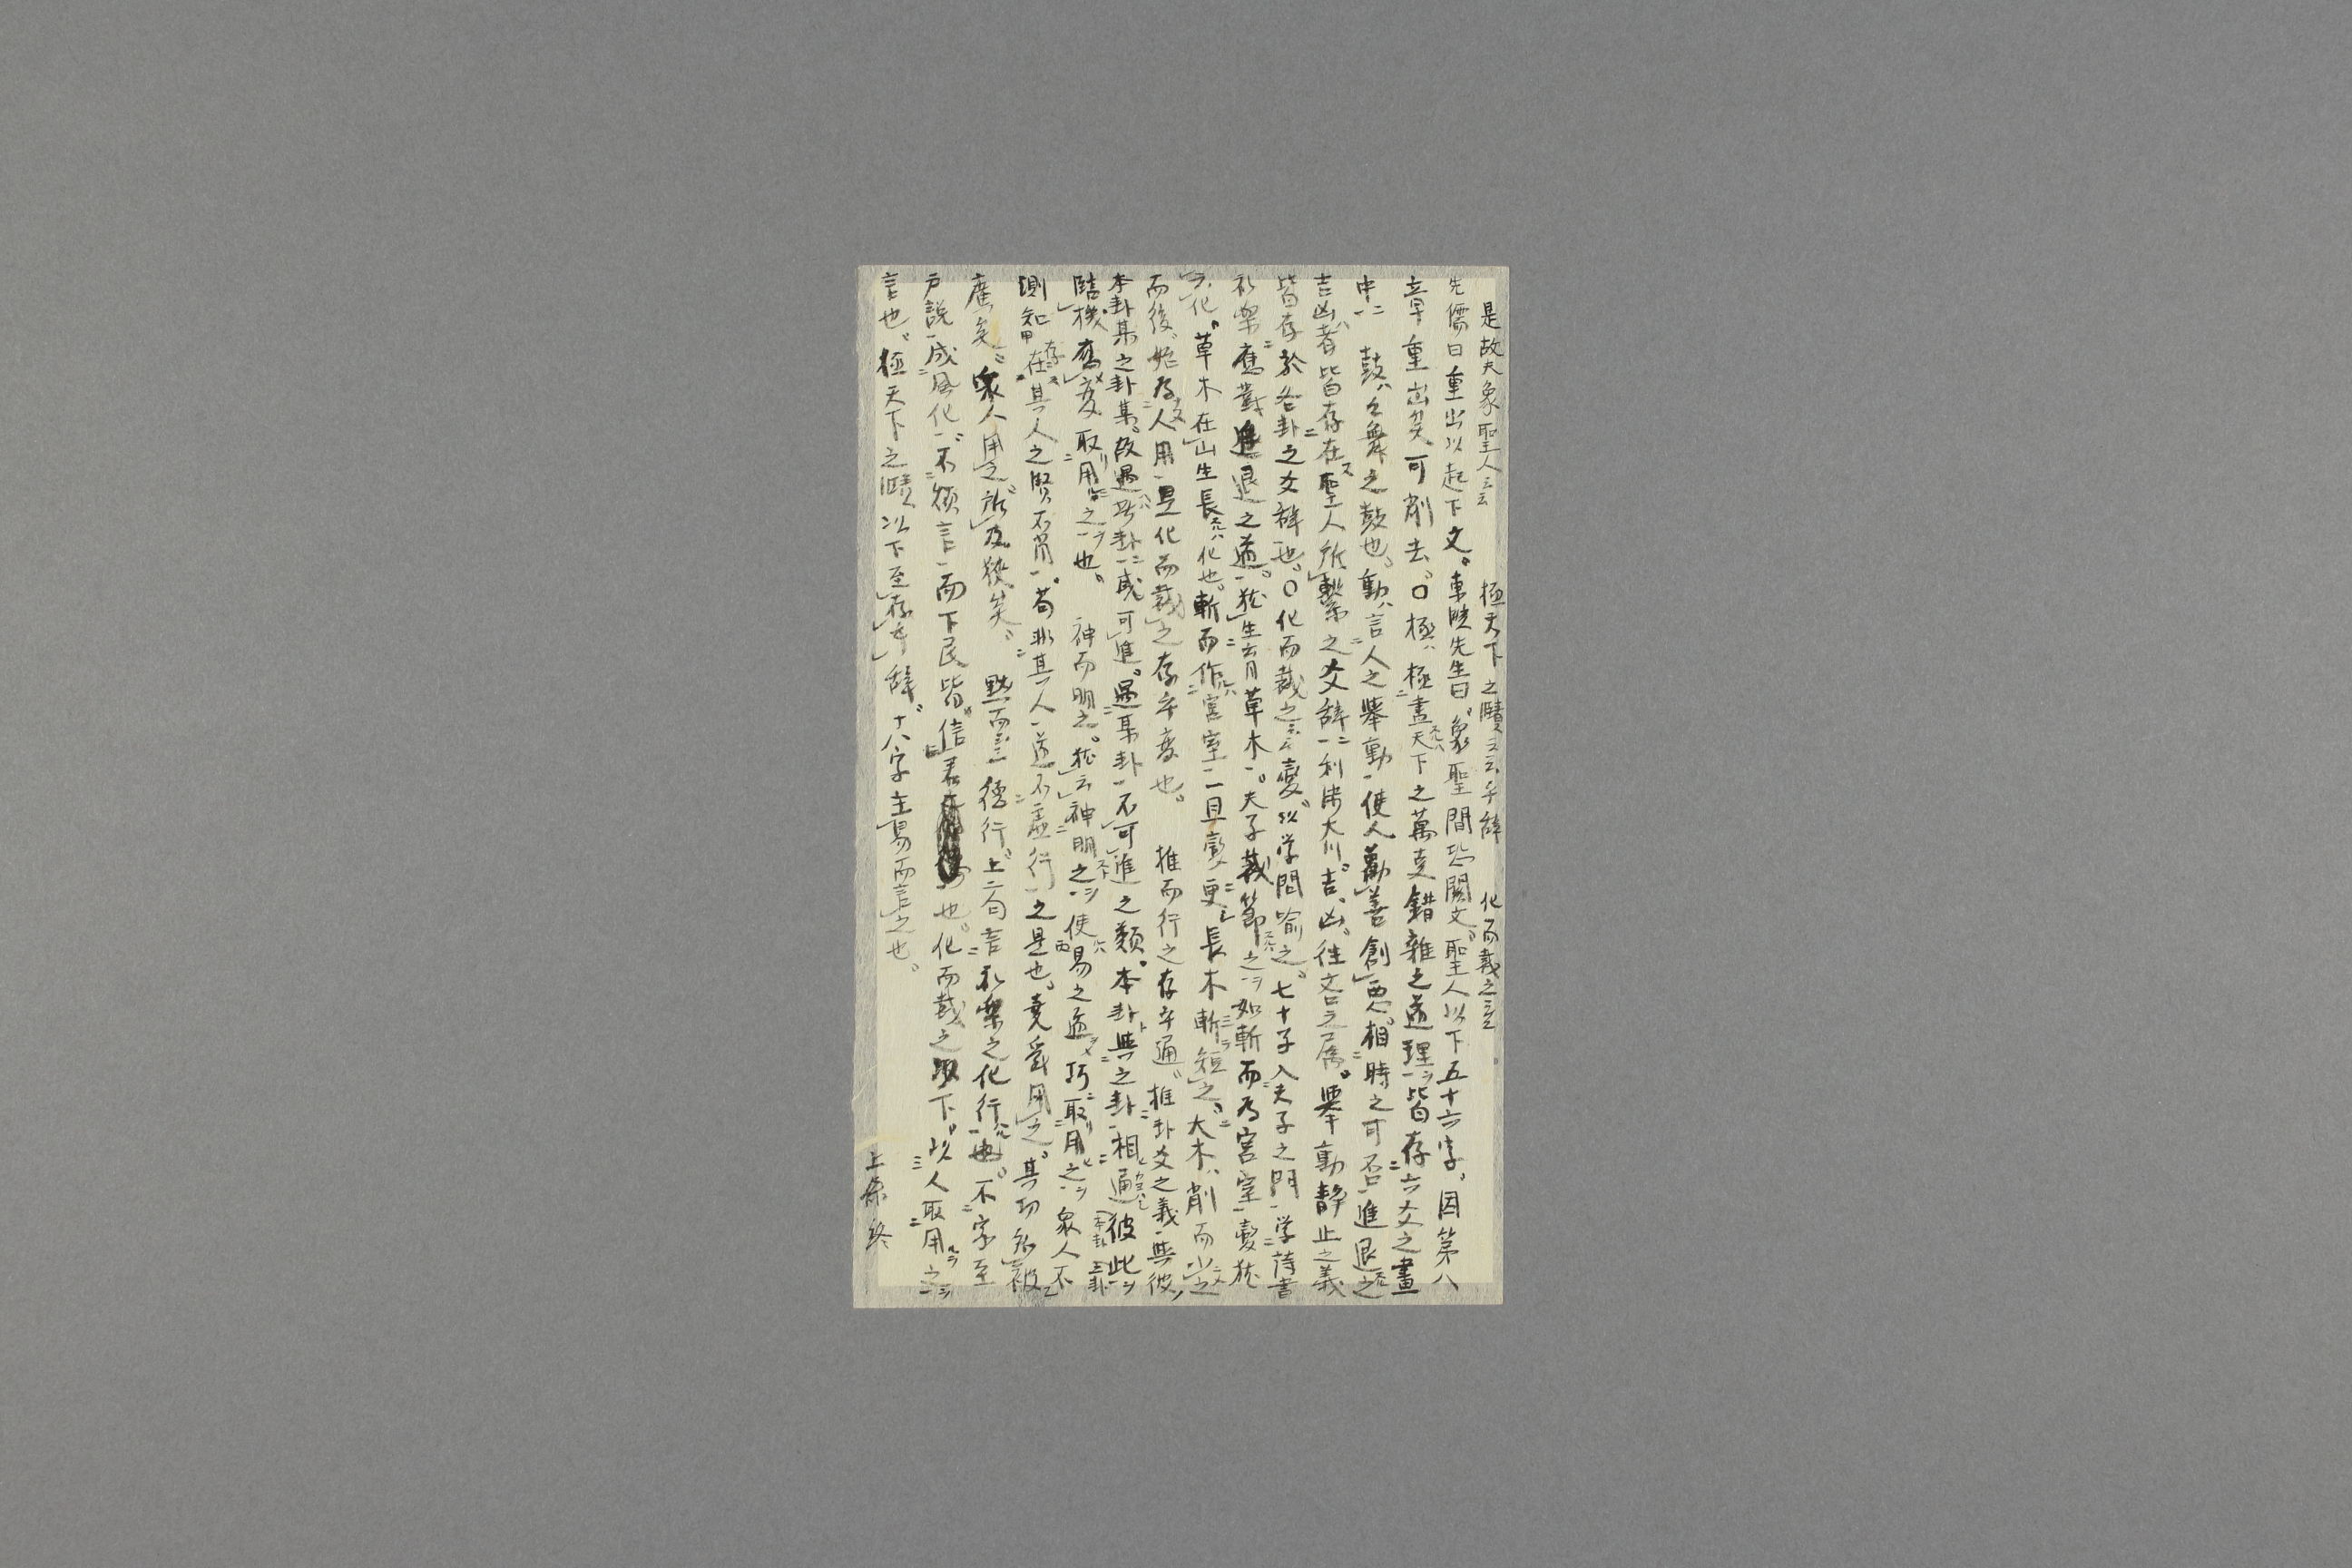 是故夫象聖人云云　極天下之賾云云乎辭　化而裁之云云
先儒曰重出以起下文。東陵先生曰。象聖間恐闕文。聖人以下五十六字。因第八
章重出矣。可削去。〇極ハ極盡天下之萬変錯雜之道理ヲ皆存六爻之畫
中ニ　鼓ハ之舞之鼓也。動ハ言人之舉動使人勸善創惡。相時之可否進退之
吉凶者皆存在聖人所繫之爻辭ニ利渉大川。吉。凶。往吝之属。舉動静止之義
皆存於各卦之爻辞也。〇化而裁之云云變。以学問喻之。七十子入夫子之門学詩書
礼樂應對進退之道。猶生育草木。夫子裁節之ヲ如斬而為宮室變猶
化。草木在山生長ハ化也。斬而作宮室一旦變更。長木斬短之。大木ハ削而小之
而後始存人用。是化而裁之存乎変也。　推而行之存乎通。推卦爻之義與彼
本卦某之卦某。故遇此卦咸可進。遇某卦不可進之類。本卦與之卦相通彼此
臨機應変取用之也。　神而明之。猶云神明之。使易之道巧取用之ヲ衆人不
測知在其人之賢不肖。苟非其人道不虚行之是也。堯舜用之。其功被
廣矣。衆人用之所及狹矣。　黙而云云德行。上二句言礼樂之化行也。不字至
戸説成風化。不煩言而下民皆信也。化而裁之以下。以人取用之
言也。極天下之賾以下至存乎辞。十八字主易而言之也。
上條終